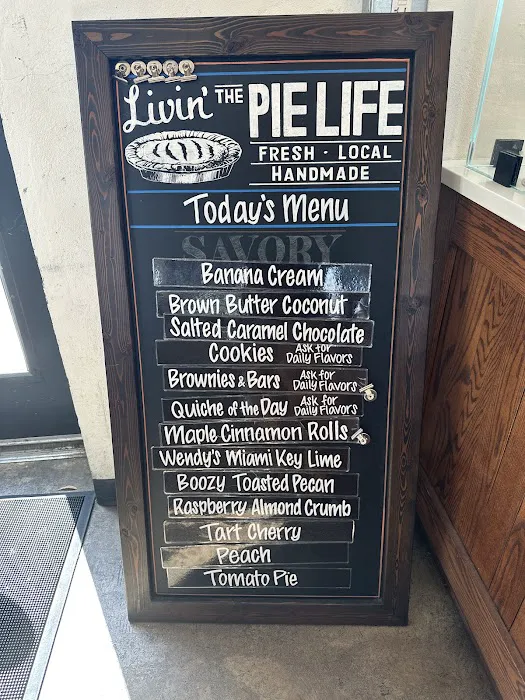 Livin' THE PIE LIFE
FRESH · LOCAL
HANDMADE
Today's Menu
SAVORY
Banana Cream
Brown Butter Coconut
Salted Caramel Chocolate
Cookies Ask for Daily Flavors
Brownies & Bars Ask for Daily Flavors
Quiche of the Day Ask for Daily Flavors
Maple Cinnamon Rolls
Wendy's Miami Key Lime
Boozy Toasted Pecan
Raspberry Almond Crumb
Tart Cherry
Peach
Tomato Pie